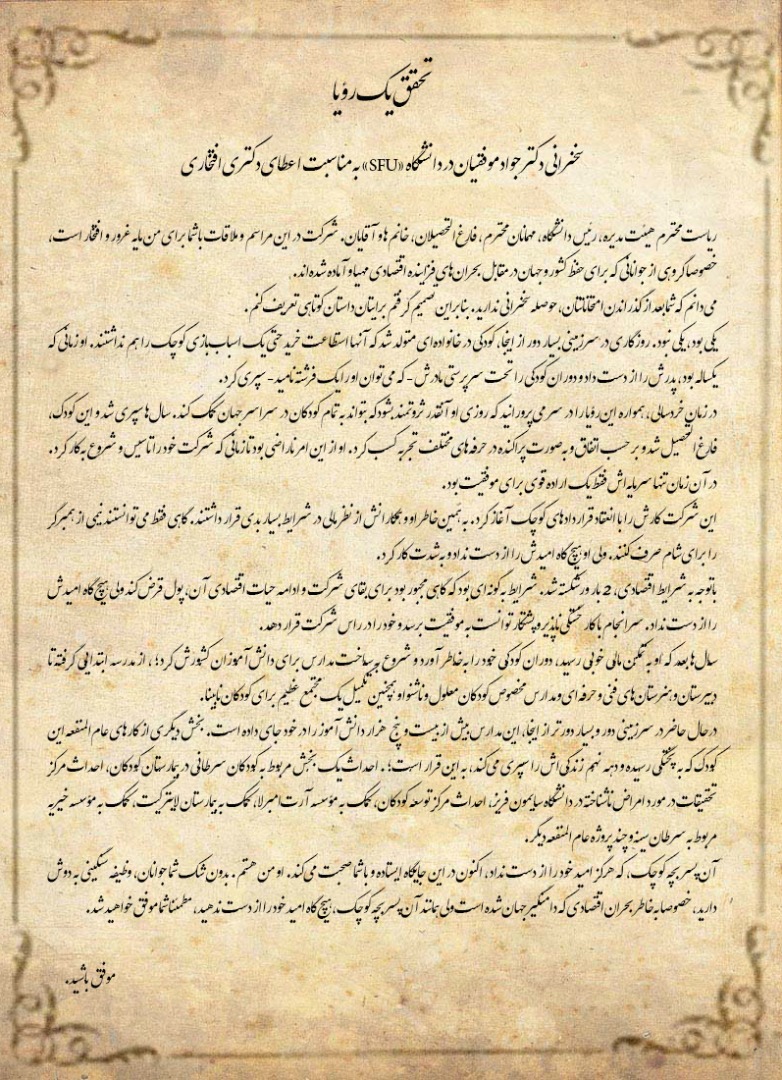 تحقق یک رؤیا
سخنرانی دکتر جواد موفقیان در دانشگاه «SFU» به مناسبت اعطای دکتری افتخاری
ریاست محترم هیئت مدیره، رئیس دانشگاه، مهمانان محترم، فارغ التحصیلان، خانم ها و آقایان. شرکت در این مراسم و ملاقات باشما برای من مایه غرور و افتخار است،
خصوصا گروهی از جوانانی که برای حفظ کشور و جهان در مقابل بحران های فزاینده اقتصادی مهیا و آماده شده اند.
می دانم که شما بعد از گذراندن امتحاناتتان، حوصله سخنرانی ندارید. بنابراین صمیم گرفتم برایتان داستان کوتاهی تعریف کنم.
یکی بود، یکی نبود. روزگاری در سرزمینی بسیار دور از اینجا، کودکی در خانواده ای متولد شد که آنها استطاعت خرید حتی یک اسباب بازی کوچک را هم نداشتند. او زمانی که
یکساله بود، پدرش را از دست داد و دوران کودکی را تحت سرپرستی مادرش - که می توان او را یک فرشته نامید - سپری کرد.
در زمان خردسالی، همواره این رؤیا را در سر می پرورانید که روزی او آنقدر ثروتمند بشود که بتواند به تمام کودکان در سراسر جهان کمک کند. سال ها سپری شد و این کودک،
فارغ التحصیل شد و بر حسب اتفاق و به صورت پراکنده در حرفه های مختلف تجربه کسب کرد. او از این امر ناراضی بود تا زمانی که شرکت خود را تاسیس و شروع به کار کرد.
در آن زمان تنها سرمایه اش فقط یک اراده قوی برای موفقیت بود.
این شرکت کارش را با انعقاد قرار دادهای کوچک آغاز کرد. به همین خاطر او و همکارانش از نظر مالی در شرایط بسیار بدی قرار داشتند. گاهی فقط می توانستند نیمی از همبرگر
را برای شام صرف کنند. ولی او هیچ گاه امیدش را از دست نداد و به شدت کار کرد.
باتوجه به شرایط اقتصادی، 2 بار ورشکسته شد. شرایط به گونه ای بود که گاهی مجبور بود برای بقای شرکت و ادامه حیات اقتصادی آن، پول قرض کند ولی هیچ گاه امیدش
را از دست نداد. سرانجام با کار خستگی ناپذیر و پشتکار توانست به موفقیت برسد و خود را در راس شرکت قرار دهد.
سال ها بعد که او به تمکن مالی خوبی رسید، دوران کودکی خود را به خاطر آورد و شروع به ساخت مدارس برای دانش آموزان کشورش کرد؛ از مدرسه ابتدایی گرفته تا
دبیرستان و هنرستان های فنی و حرفه ای و مدارس مخصوص کودکان معلول و ناشنوا و همچنین تکمیل یک مجتمع عظیم برای کودکان نابینا.
درحال حاضر در سرزمینی دور و بسیار دورتر از اینجا، این مدارس بیش از بیست و پنج هزار دانش آموز را در خود جای داده است. بخش دیگری از کارهای عام المنفعه این
کودک که به پختگی رسیده و دهه نهم زندگی اش را سپری می کند، به این قرار است: احداث یک بخش مربوط به کودکان سرطانی در بیمارستان کودکان، احداث مرکز
تحقیقات در مورد امراض ناشناخته در دانشگاه سایمون فریزر، احداث مرکز توسعه کودکان، کمک به مؤسسه آرت امبرلا، کمک به بیمارستان لاینزگیت، کمک به مؤسسه خیریه
مربوط به سرطان سینه و چند پروژه عام المنفعه دیگر.
آن پسر بچه کوچک، که هرگز امید خود را از دست نداد، اکنون در این جایگاه ایستاده و با شما صحبت می کند. او من هستم. بدون شک شما جوانان، وظیفه سنگینی به دوش
دارید، خصوصا به خاطر بحران اقتصادی که دامنگیر جهان شده است ولی همانند آن پسر بچه کوچک، هیچ گاه امید خود را از دست ندهید، مطمئنا شما موفق خواهید شد.
موفق باشید.